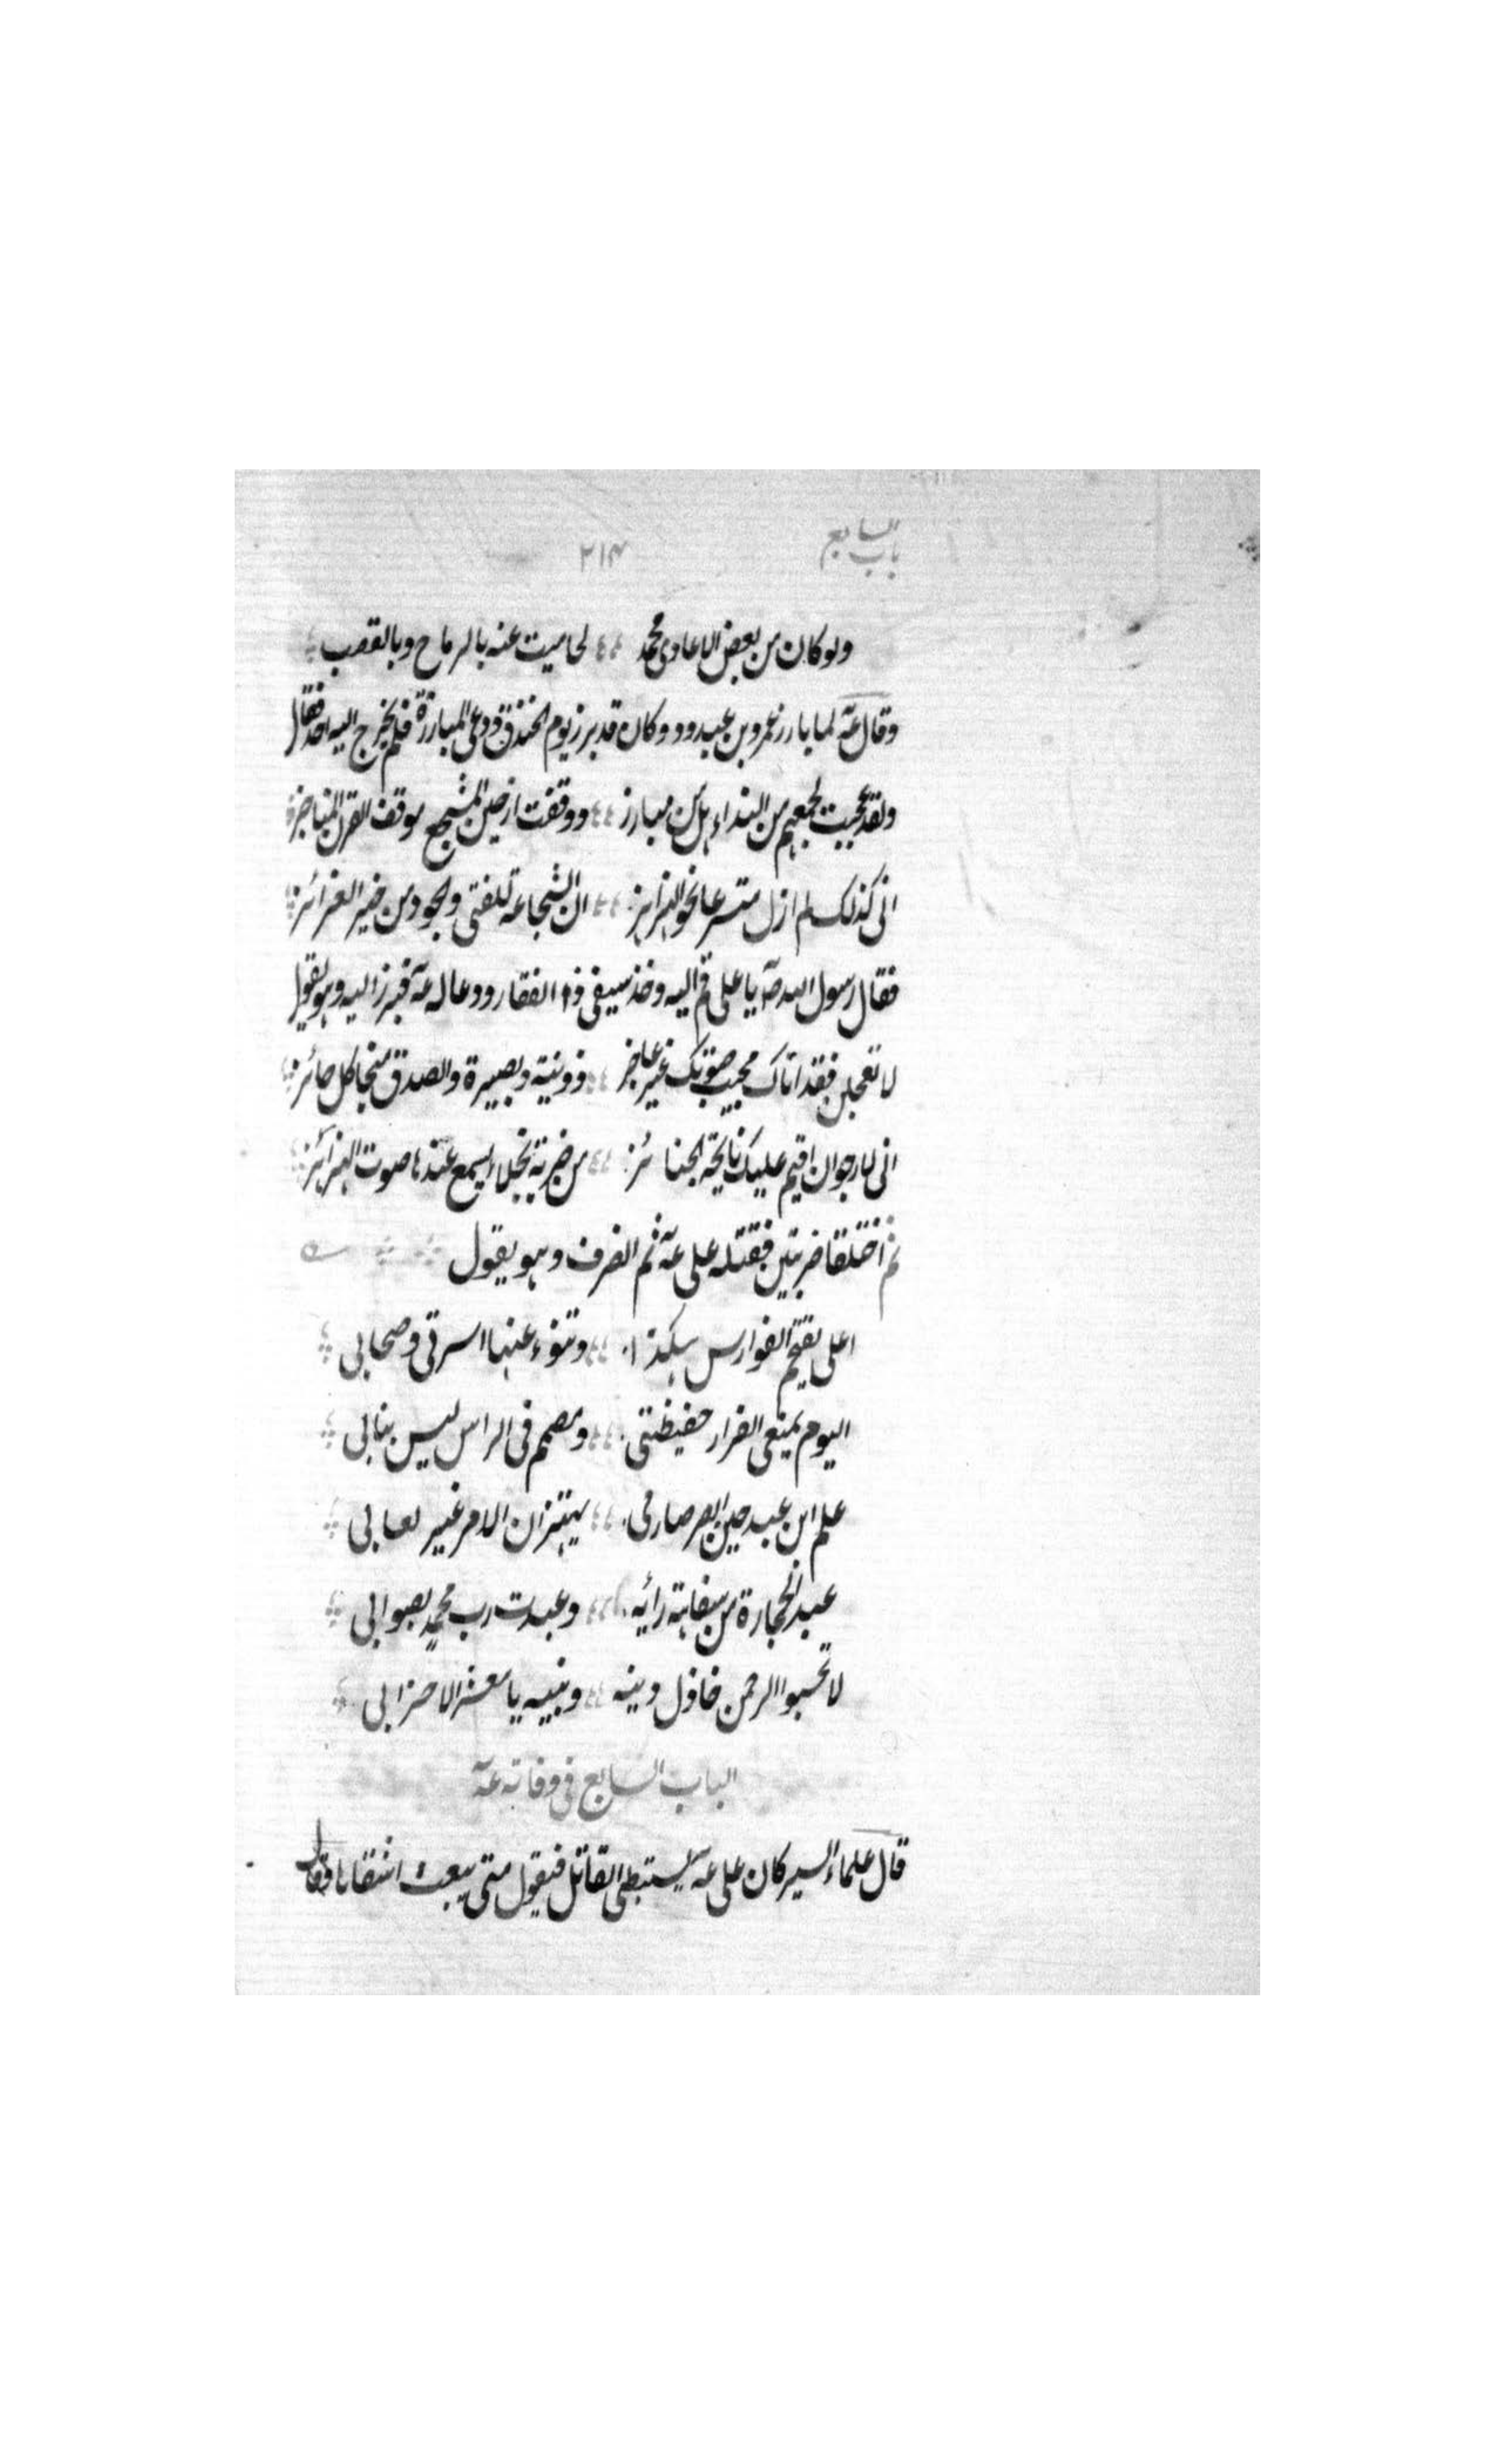 باب السابع ٢١٣
ولو كان من بعض الاعادى محمد لحاميت عنه بالرماح وبالقصب
وقال عه لما بارز عمرو بن عبدود وكان قد برز يوم الخندق ودعى المبارزة فلم يخرج اليه احد فقال
ولقد عجبت لجمعهم من النداء هل من مبارز ووقفت اذ جبن المشجع موقف القرن المناجز
انى كذلك لم ازل متسرعا نحو الهزاهز ان الشجاعة للفتى والجود من خير الغرائز
فقال رسول الله صه يا على قم اليه وخذ سيفى ذا الفقار ودعا له عه فبرز اليه وهو يقول
لا تعجلن فقد اتاك مجيب صوتك غير عاجز ذو نية وبصيرة والصدق منجا كل حائز
انى لارجوان اقيم عليك نايحة الجنائز من ضربة نجلاء يسمع عندها صوت الهزائز
ثم اختلفا ضربتين فقتله على عه ثم انصرف وهو يقول
اعلى يقتحم الفوارس هكذا وتنوء عنها اسرتى وصحابى
اليوم يمنعى الفرار حفيظتى ومصمم فى الراس ليس بنابى
علم ابن عبد حين ابصر صارمى يهتز ان الامر غير لعابى
عبد الحجارة من سفاهة رأيه وعبدت رب محمد بصوابى
لا تحسبوا الرحمن خاذل دينه ونبيه يا معشر الاحزابى
الباب السابع فى وفاته عه
قال علماء السير كان على عه يستبطى القاتل فيقول متى يبعث اشقاها فقال